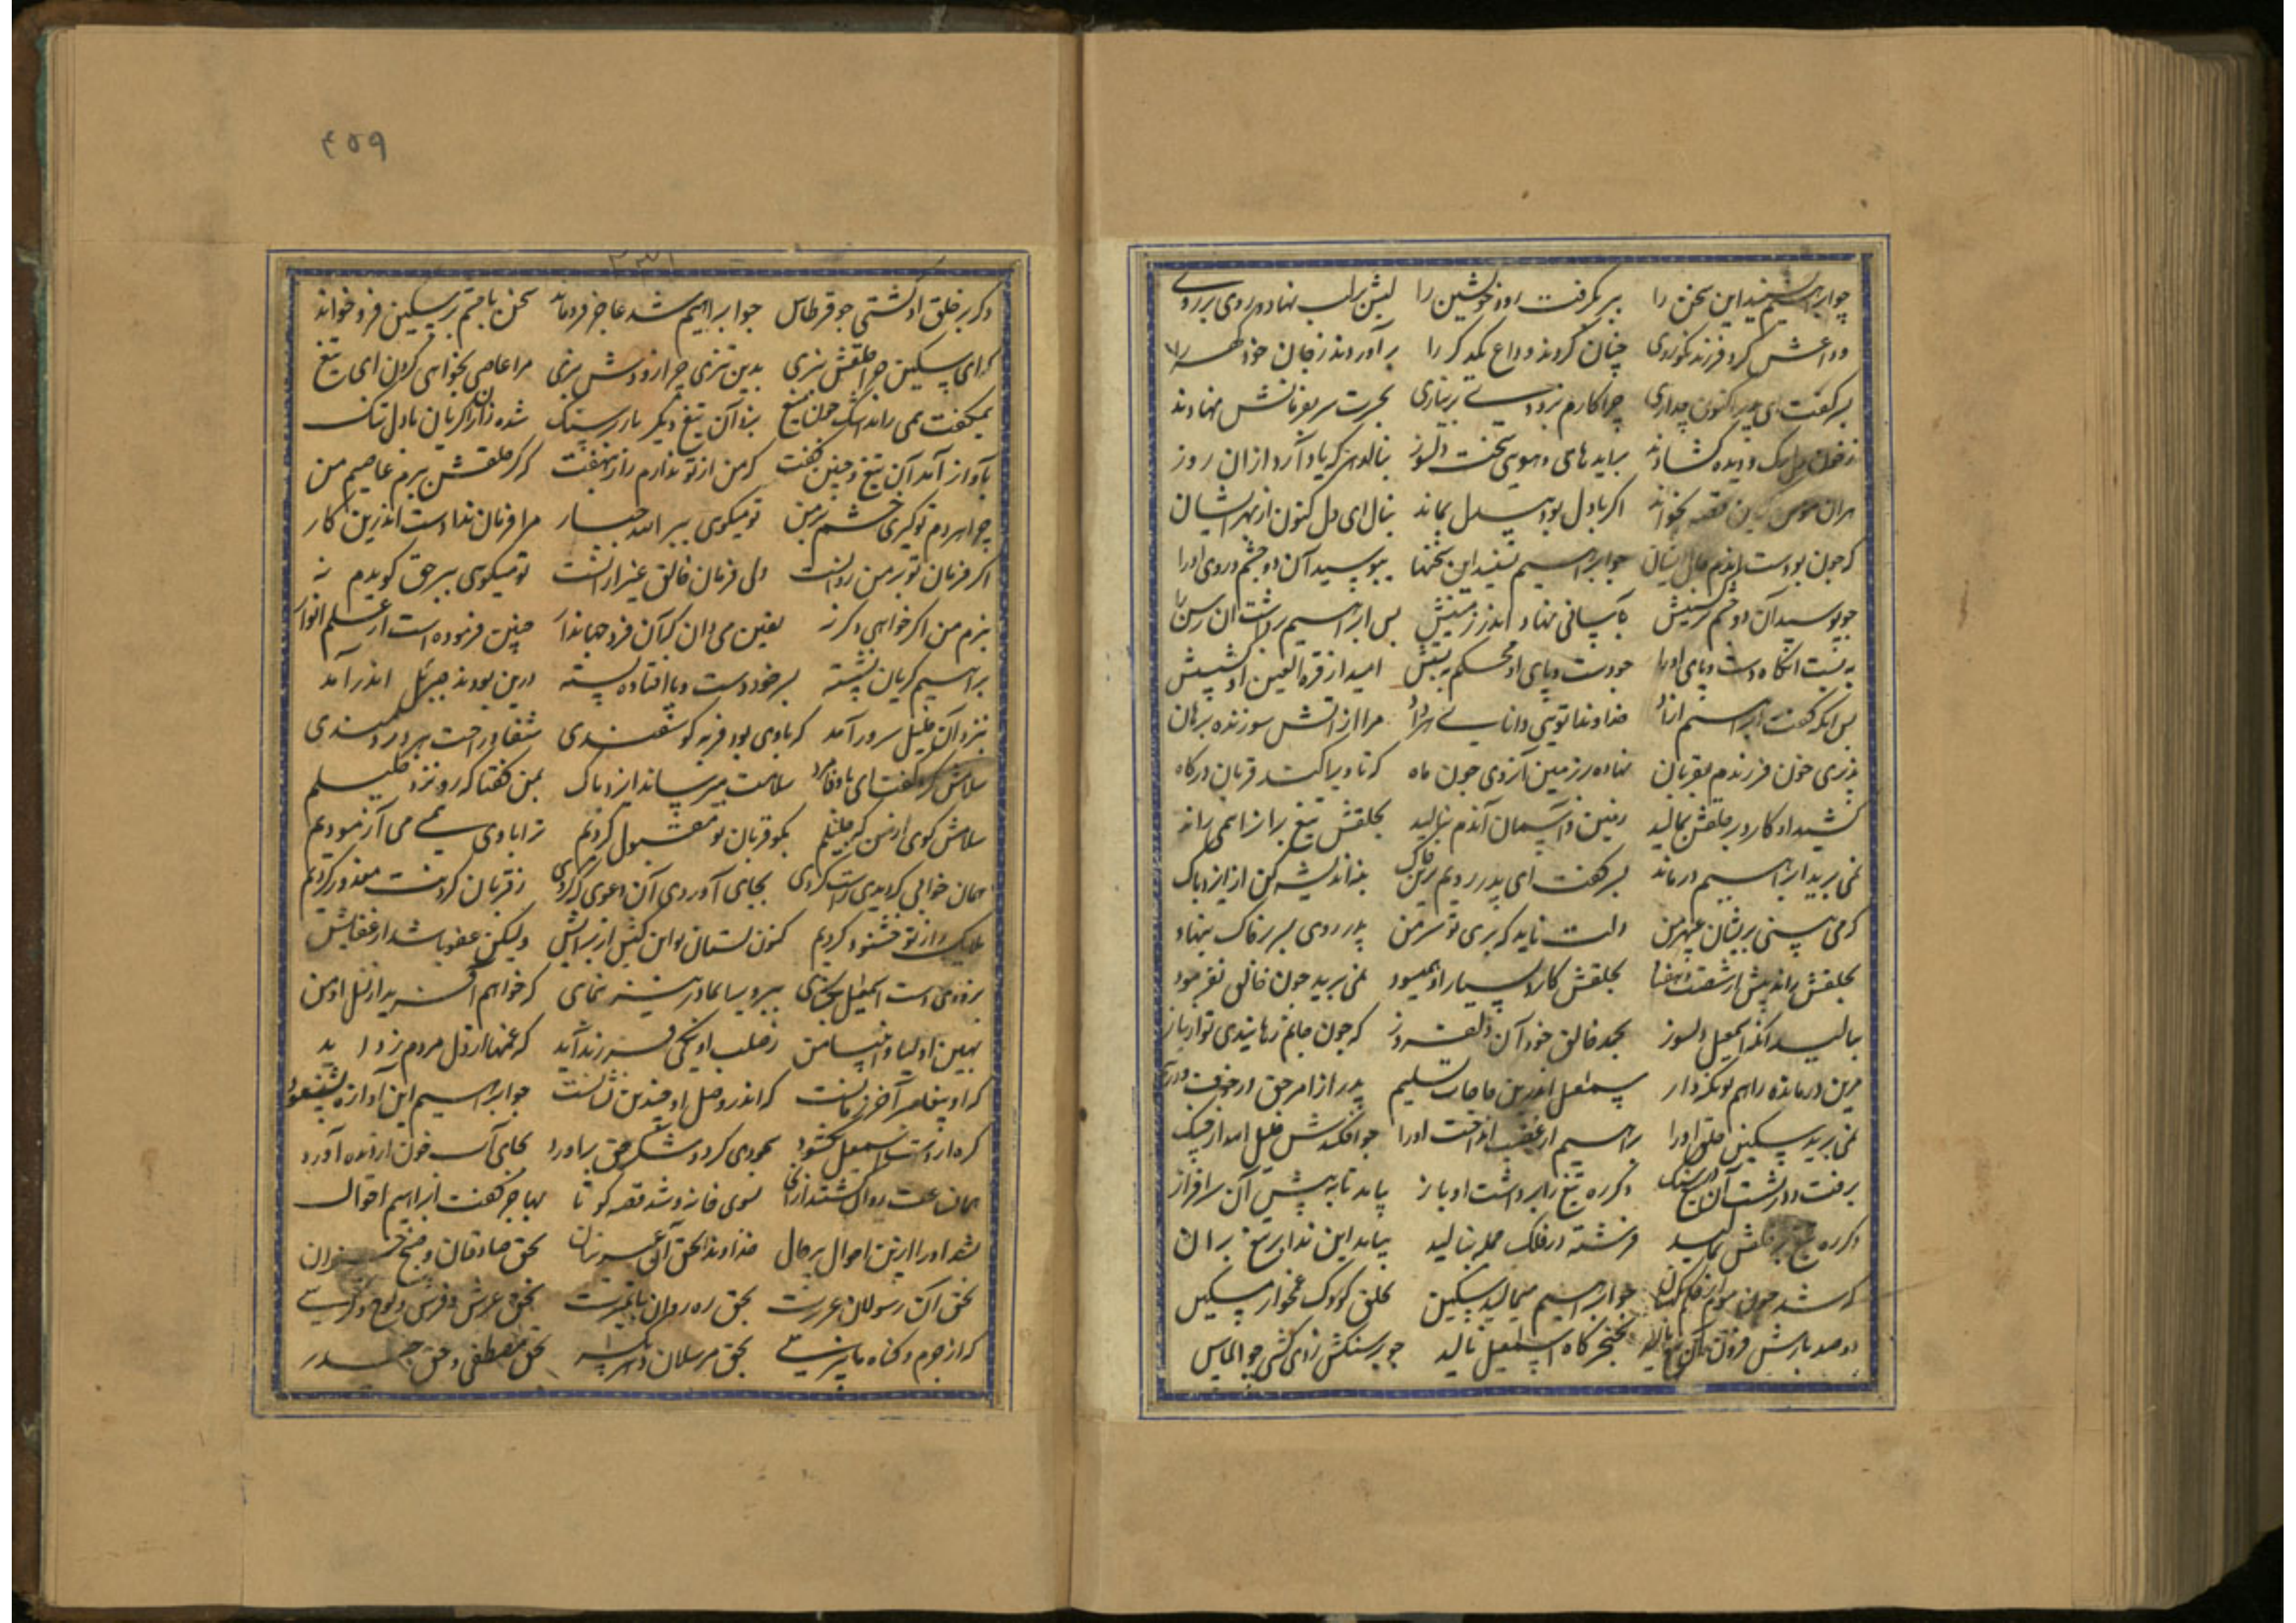 چو ابراهیم بشنید این سخن را ببر بگرفت پور خویشتن را لبش بر لب نهاد و روی بر روی
وداعش کرد فرزند نکوروی چنان کردند وداع یکدگر را برآوردند ز جان خود
پسر گفت ای پدر اکنون چه داری چرا کارم بزودی بحسرت سر بفرمانش نهادند
دیده گشادند بیاید های و هویی سخت دلسوز بنالد هر که یاد آرد از آن روز
هر آن مومن که این قصه بخواند اگر با دل بود بیدل بماند بنال ای دل کنون از بهر ایشان
که چون بودست آندم حال ایشان چو ابراهیم شنید این سخنها ببوسید آن دو چشم و روی او را
چو بوسید آن دو چشم به آسانی نهاد اندر زمینش پس ابراهیم برداشت آن رسن را
به بست آنگاه دست و پای او را چو دست و پای او محکم به بستش امید از قرة العین او
پس آنگه گفت ابراهیم خداوندا تویی دانای مرا از آتش سوزنده برهان
پذیری خون فرزندم بقربان نهاده بر زمین آن روی چون ماه که تا ویرا کند قربان درگاه
کشید او کارد بر حلقش بمالید زمین و آسمان آندم بنالید بحلقش تیغ بران را همی راند
نمی برید ابراهیم درماند پسر گفت ای پدر رویم بر خاک بنه اندیشه کن از ایزد پاک
که می بینی پریشان چهر من دلت ناید که بری تو سر من پدر روی پسر بر خاک بنهاد
بحلقش راند بحلقش کارد بسیار او همی سود نمی برید چون خالق نفرمود
بنالید آنگه اسمعیل دلسوز بحمد خالق خود آن دلفروز که چون جانم رهانیدی تو از
درین درمانده را هم سمعیل اندرین حاجات تسلیم پدر از امر حق در خوف
نمی برید سکین حلق او را براهیم از غضب انداخت او را چو افکندش خلیل آمد
برفت و درنشست آن تیغ در سنگ دگر ره تیغ را برداشت او باز بیامد تا به پیش آن سرافراز
دگر ره تیغ بر حلقش بمالید فرشته در فلک جمله بنالید بیامد این ندا بر تیغ بران
که شد چو ابراهیم میمالید سکین بحلق کودک غمخوار مسکین
دو صد بارش فزون آن تیغ مالید بخنجرگاه اسمعیل نالید چو بر سنگش زدی گشتی چو الماس
۴۵۹
دگر بر حلق او گشتی چو قرطاس چو ابراهیم شد عاجز فروماند سخن با خشم بر سکین فرو خواند
که ای سکین چرا حلقش نبری بدین تیزی چرا زودش نبری مرا عاصی بخواهی کردن ای تیغ
همیگفت همی راند اشک چون میغ بزد آن تیغ دیگر بار بر سنگ شده زان کار گریان با دل تنگ
بآواز آمد آن تیغ و چنین گفت که من از تو ندارم راز بنهفت که گر حلقش برم عاصیم من
چرا هر دم تو گیری خشم بر من تو میگوی ببر الله جبار مرا فرمان ندادست اندرین کار
اگر فرمان تو بر من روانست ولی فرمان خالق غیر از آنست تو میگوی ببر حق گویدم نه
نبرم من اگر خواهی وگر نه یقین می دان چنین فرموده است
براهیم گریان نشسته پسر خود دست و پا افتاده بسته درین بودند جبرئیل اندر آمد
بنزد آن خلیل سرور آمد که با وی بود فربه گوسفندی شفا و راحت هر دردمندی
سلامش کرد گفت ای با وفا مرد سلامت میرساند ایزد پاک بمن گفتا که رو نزد خلیلم
سلامش گوی از من کو خلیلم بگو قربان تو مقبول کردیم ترا با وی همی می آزمودیم
همان خوابی که دیدی راست کردی بجای آوردی آن دعوی که کردی ز قربان کردنت معذور کردیم
ملایک را ز تو خشنود کردیم کنون بستان تو این کبش از برایش ولیکن عفو باشد از
برو دست اسمعیل بگشای ببر ویرا بمادر نیز بنمای که خواهم آفرید از نسل او من
بهین اولیا و انبیا من ز صلب او یکی فرزند آید که غمها از دل مردم زداید
که او پیغامبر آخر زمانست که اندر وصل او چندین نشانست چو ابراهیم این آواز بشنود
گره از دست اسمعیل بگشود سجودی کرد و شکر حق بیاورد بجای آب خون از دیده آورد
همان ساعت روان گشتند از آنجا بسوی خانه و شد قصه کوتا بهاجر گفت ابراهیم احوال
بشد او را ازین احوال بر حال خداوندا بحق آل عمران بحق صادقان و صبح خیزان
بحق آن رسولان عزیزت بحق ره روان با تمیزت بحق عرش و فرش و لوح و کرسی
که از جرم و گناه ما نپرسی بحق مرسلان بحق مصطفی و حق حیدر